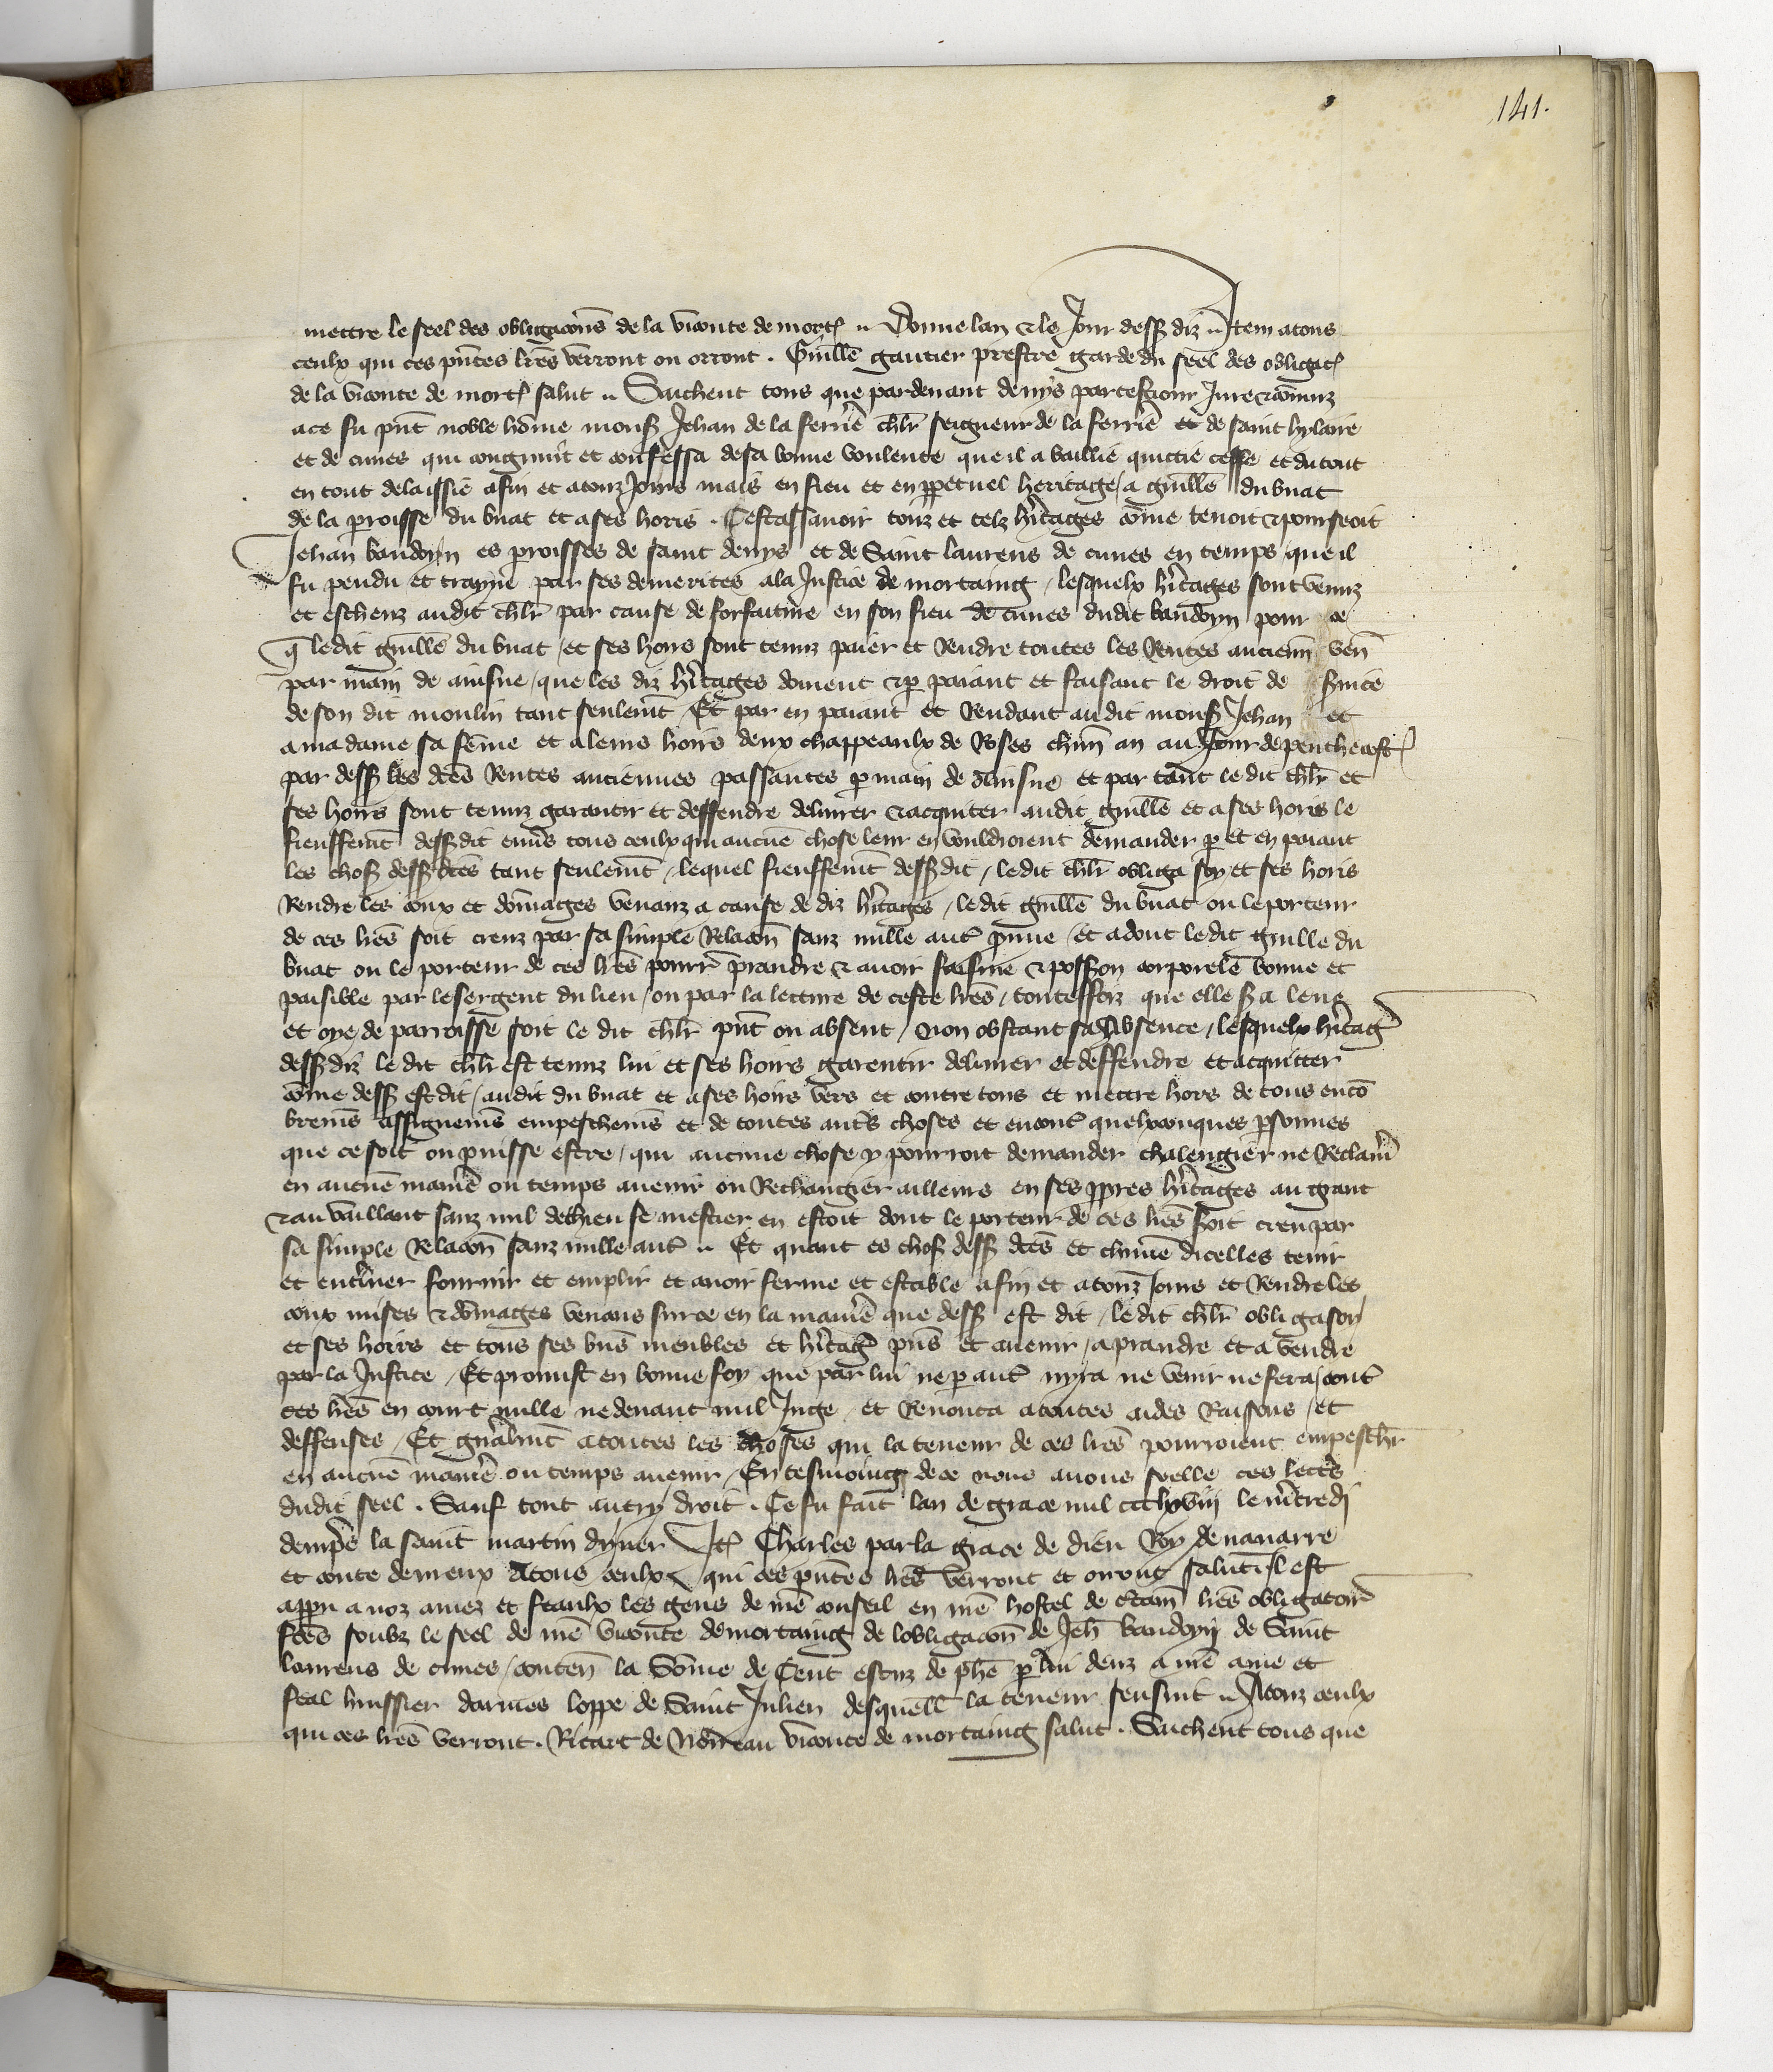 141.
mettre le seel des obligacōns de la viconte de mort̃ . Donne lan & le Jour dessß diz . Item a tous
ceulx qui ces pñtes lrẽs verront ou orront . Guillẽ gautier prestre garde du seel des obligac̃
de la viconte de mort̃ salut . Saichent tous que par deuant denys Jure & cōmis
a ce fu pñt noble hõme monsß Jehan de la ferrie᷑ chlr̃ seigneur de la ferrie᷑ et de saint hylaire
et de cuues qui congnut et confessa de sa bonne voulente que il a baillie quictie cesse et du tout
en tout delaissie afin et a touz Jours mais en fieu et en ꝑpetuel heritage / a guillẽ du buat
de la ꝑroisse du buat et a ses hoirs . Cest assauoir touz et telz hr̃itages cõme tenoit & pourseoit
Jehan baudoyn es ꝑroisses de saint denys et de Saint laurens de cuues en temps que il
fu pendu et trayne par ses demerites a la Justice de mortaing / lesquelx hr̃itages sont venuz
et escheuz au dit chlr̃ par cause de forfaiture en son fieu de cuues dudit baudoyn pour ce
q̃ le dit guillẽ du buat / et ses hoirs sont tenuz paier et Rendre toutes les Rentes ancienñ ven̄
par main de ainsne / que les diz hr̃itages doiuent & ꝑ paiant et faisant le droit de
de son dit moulin tant seulemt̃ Et par en paiant et Rendant au dit monsß Jehan et
a ma dame sa fẽme et a leurs hoirs deux chappeaulx de Roses chũn an au Jour de penthecost̃
par dessß les dc̃es Rentes anciennes passantes ꝑ main de ainsne et par tant le dit chlr̃ et
ses hoirs sont tenuz garantir et deffendre deliurer & acquiter au dit guillẽ et a ses hoirs le
fieuffemt̃ dessßdit enũs tous ceulx qui aucũe chose leur en vouldroient demander ꝑ et en paiant
les chosß dessßdc̃es tant seulemt̃ / lequel fieuffemt̃ dessßdit / le dit chlr̃ obliga soy et ses hoirs
Rendre les coux et dõmages venanz a cause de diz hr̃itages / le dit guillẽ du buat ou le porteur
de ces lrẽs soit creuz par sa simple Relacōn sanz nulle aut̃ preuue / et adont le dit guille du
buat ou le porteur de ces lrẽs pourr̃ prandre & auoir saisine & possßon corporelẽ bonne et
paisible par le sergent du lieu / ou par la lecture de ceste lrẽs / toutessfoiz que elle ßa leue
et oye / de parroisse soit le dit chlr̃ pñt ou absent / non obstant sa absence / lesquelx hr̃itag̃
dessßdiz le dit chlr̃ est tenuz lui et ses hoirs garentir deliurer et deffendre et acquitter
cõme dessß est dit / audit du buat et a ses hoirs vers et contre tous et mettre hors de tous encõ
bremẽs assignemẽs empeschemẽs et de toutes autr̃s choses et encont̃ quelxconques ꝑsonnes
que ce soit ou puisse estre / qui aucune chose y pourroit demander chalengier ne Reclam̃
en aucũe manie᷑ ou temps auenir ou Rechangier ailleurs en ses ꝓpres hr̃itages au grant
& au vaillant sanz nul dechieu se mestier en estoit dont le porteur de ces lrẽs soit creu par
sa simple Relacōn sanz nulle aut̃ . Et quant es chosß dessß dc̃es et chũne dicelles tenir
et entr̃iner fournir et emplir et auoir ferme et estable afin et a touz Jours et Rendre les
coux mises & dõmages venans sur ce en la manie᷑ que dessß est dit / le dit chlr̃ obliga soy
et ses hoirs et tous ses biẽs meubles et hr̃itag̃ pñs et auenir / a prandre et a vendre
par la Justice / Et promist en bonne foy que par lui ne ꝑ aut̃ nyra ne venir ne fera / cont̃
ces lrẽs en court nulle ne deuant nul Juge / et Renonca a toutes aides Raisons / et
deffenses / Et gñalmt̃ a toutes les choses qui la teneur de ces lrẽs pourroient empeschr̃
en aucũe manie᷑ ou temps auenir / En tesmoing de ce nous auons seelle ces lectr̃s
dudit seel . Sauf tout autry droit . Ce fu fait lan de grace mil ccc lxviij le mr̃credj
dempre᷑s la saint martin dyuer It̃ Charles par la grace de dieu Roy de nauarre
et conte deureux A tous ceulx qui ces pñtes lrẽs verront et orront salut . Il est
appru a noz amez et feaulx les gens de nr̃e conseil en nr̃e hostel de cr̃tain lrẽs obligatoir̃
fc̃es soubz le seel de nr̃e viconte de mortaing de lobligacōn de Jeh̃ baudoyn de Saint
laurens de cuues / conten̄ la Sõme de Cent escuz de phẽ ꝑ lui deuz a nr̃e ame et
feal huissier darmes loppe de Saint Julien desquell̃ la teneur sensuit . A touz ceulx
qui ces lrẽs verront . Ricart de viconte de mortaing salut . Saichent tous que